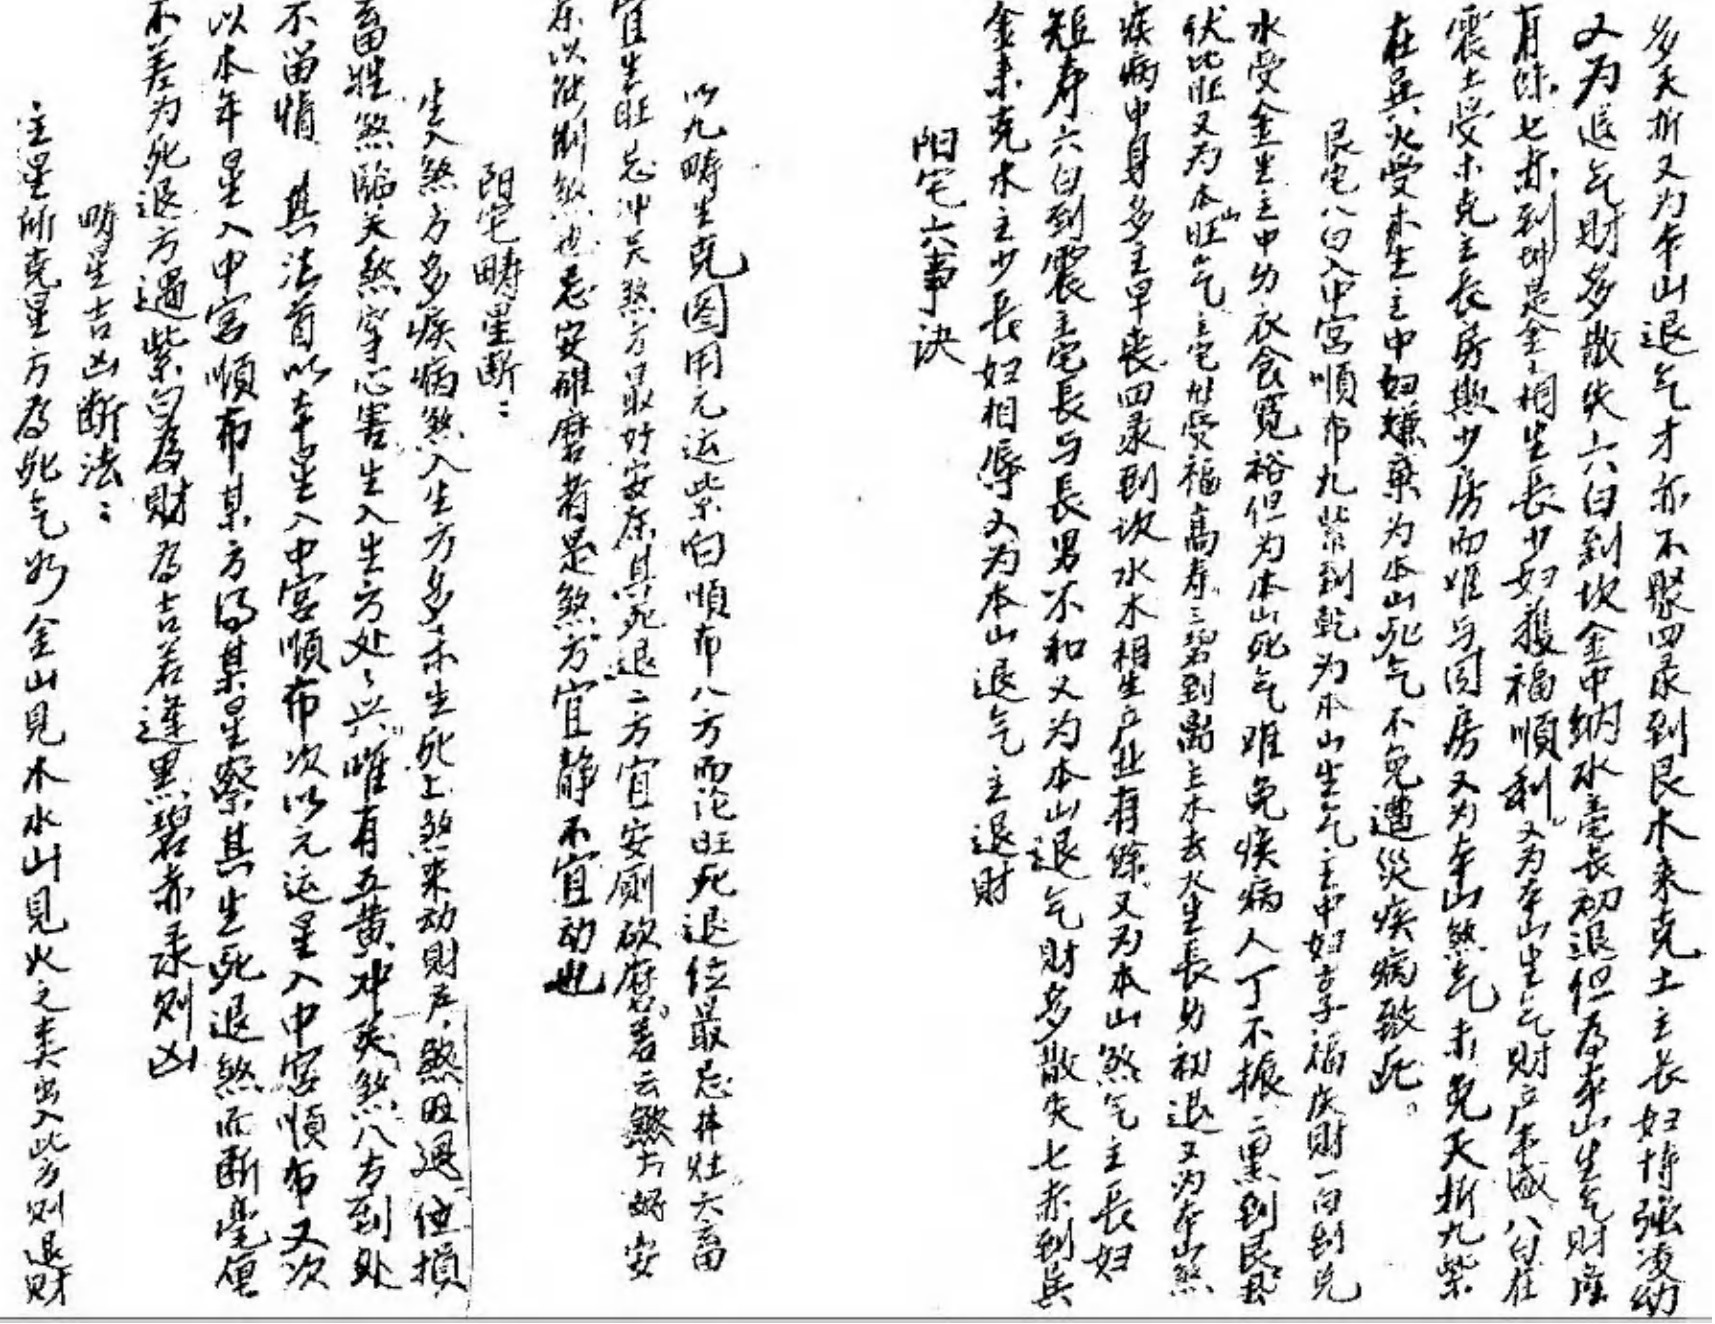 多夭折又为本山退气才亦不聚四录到艮木来克土主长妇恃强凌幼
又为退气财多散失六白到坎金中纳水主宅长初退但为本山生气财产
有馀七赤到坤是金相生长少妇获福顺利又为本山生气财产丰盛八白在
震土受木克主长房欺少房而难与同房又为本山煞气未免夭折九紫
在巽火受木生主中妇嫌弃为本山死气不免遭灾疾病致死。
艮宅八白入中宫顺布九紫到乾为本山生气主中妇享福庆财一白到兑
水受金生主中男衣食宽裕但为本山死气难免疾病人丁不振二黑到艮
伏比旺又为本山旺气主宅母受福高寿三碧到离主木去火生长男初退又为本山煞
疾病中身多主早丧四录到坎水木相生产业有馀又为本山煞气主长妇
短寿六白到震主宅长与长男不和又为本山退气财多散失七赤到巽
金来克木主少长妇相辱又为本山退气主退财
阳宅六事诀
以九畴生克图用元运紫白顺布八方而论旺死退位最忌井灶六畜
宜生旺忌冲关煞方最好安床其死退二方宜安厕砍磨若云煞方好安
床以能制煞也忌安碓磨者是煞方宜静不宜动也
阳宅畴星断：
生入煞方多疾病煞入生方多未生死上煞来动财产煞旺退位损
畜牲煞临关煞穿心害生入生方处々兴唯有五黄冲关煞八方到处
不留情 其法首以本星入中宫顺布次以元运星入中宫顺布又次
以本年星入中宫顺布某方得某星察其生死退煞而断毫厘
不差为死退方遇紫白为财为吉若逢黑碧赤录则凶
畴星吉凶断法：
主星所克星方为死气如金山见木水山见火之类出入此方则退财